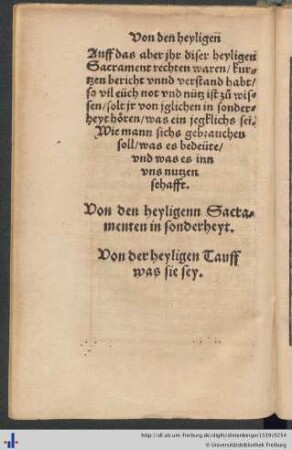 Von den heyligeñ
Auff das aber jhr diser heyligeñ
Sacrament rechten waren/ kur⸗
tzen bericht vnnd verstand habt/
so vil eüch not vnd nütz ist zů wis⸗
sen/ solt jr von jglichen in sonder⸗
heyt hören/ was ein jegklichs sei.
Wie mann sichs gebrauchen
soll/ was es bedeüte/
vnd was es inn
vns nutzen
schafft.
Von den heyligenn Sacra⸗
menten in sonderheyt.
Von der heyligen Tauff
was sie sey.
http://dl.ub.uni-freiburg.de/diglit/dietenberger1539/0254
© Universitätsbibliothek Freiburg